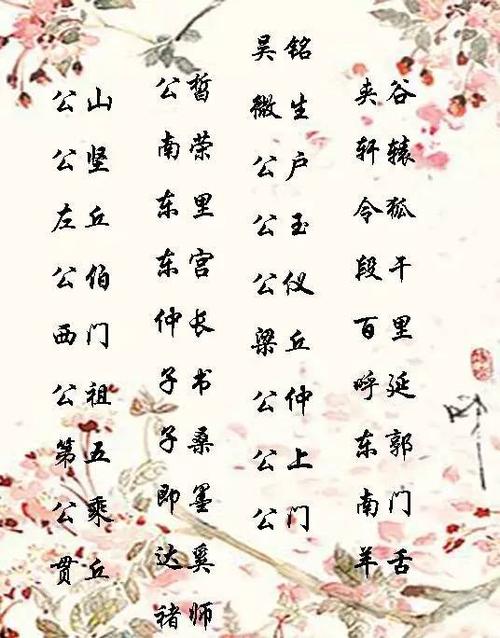 公山
公坚
左丘
公伯
西门
公祖
第五
公乘
贯丘
公皙
南荣
东里
东宫
仲长
子书
子桑
即墨
达奚
褚师
吴铭
微生
公户
公玉
公仪
梁丘
公仲
公上
公门
夹谷
轩辕
令狐
段干
百里
呼延
东郭
南门
羊舌